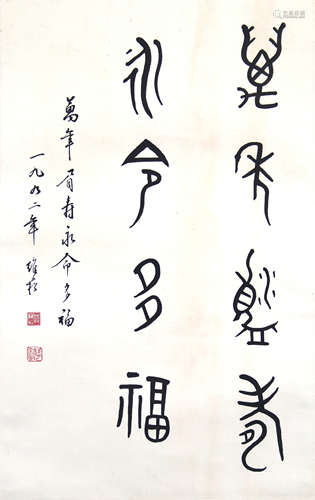 萬年眉壽
永令多福
萬年眉壽永命多福
一九九二年